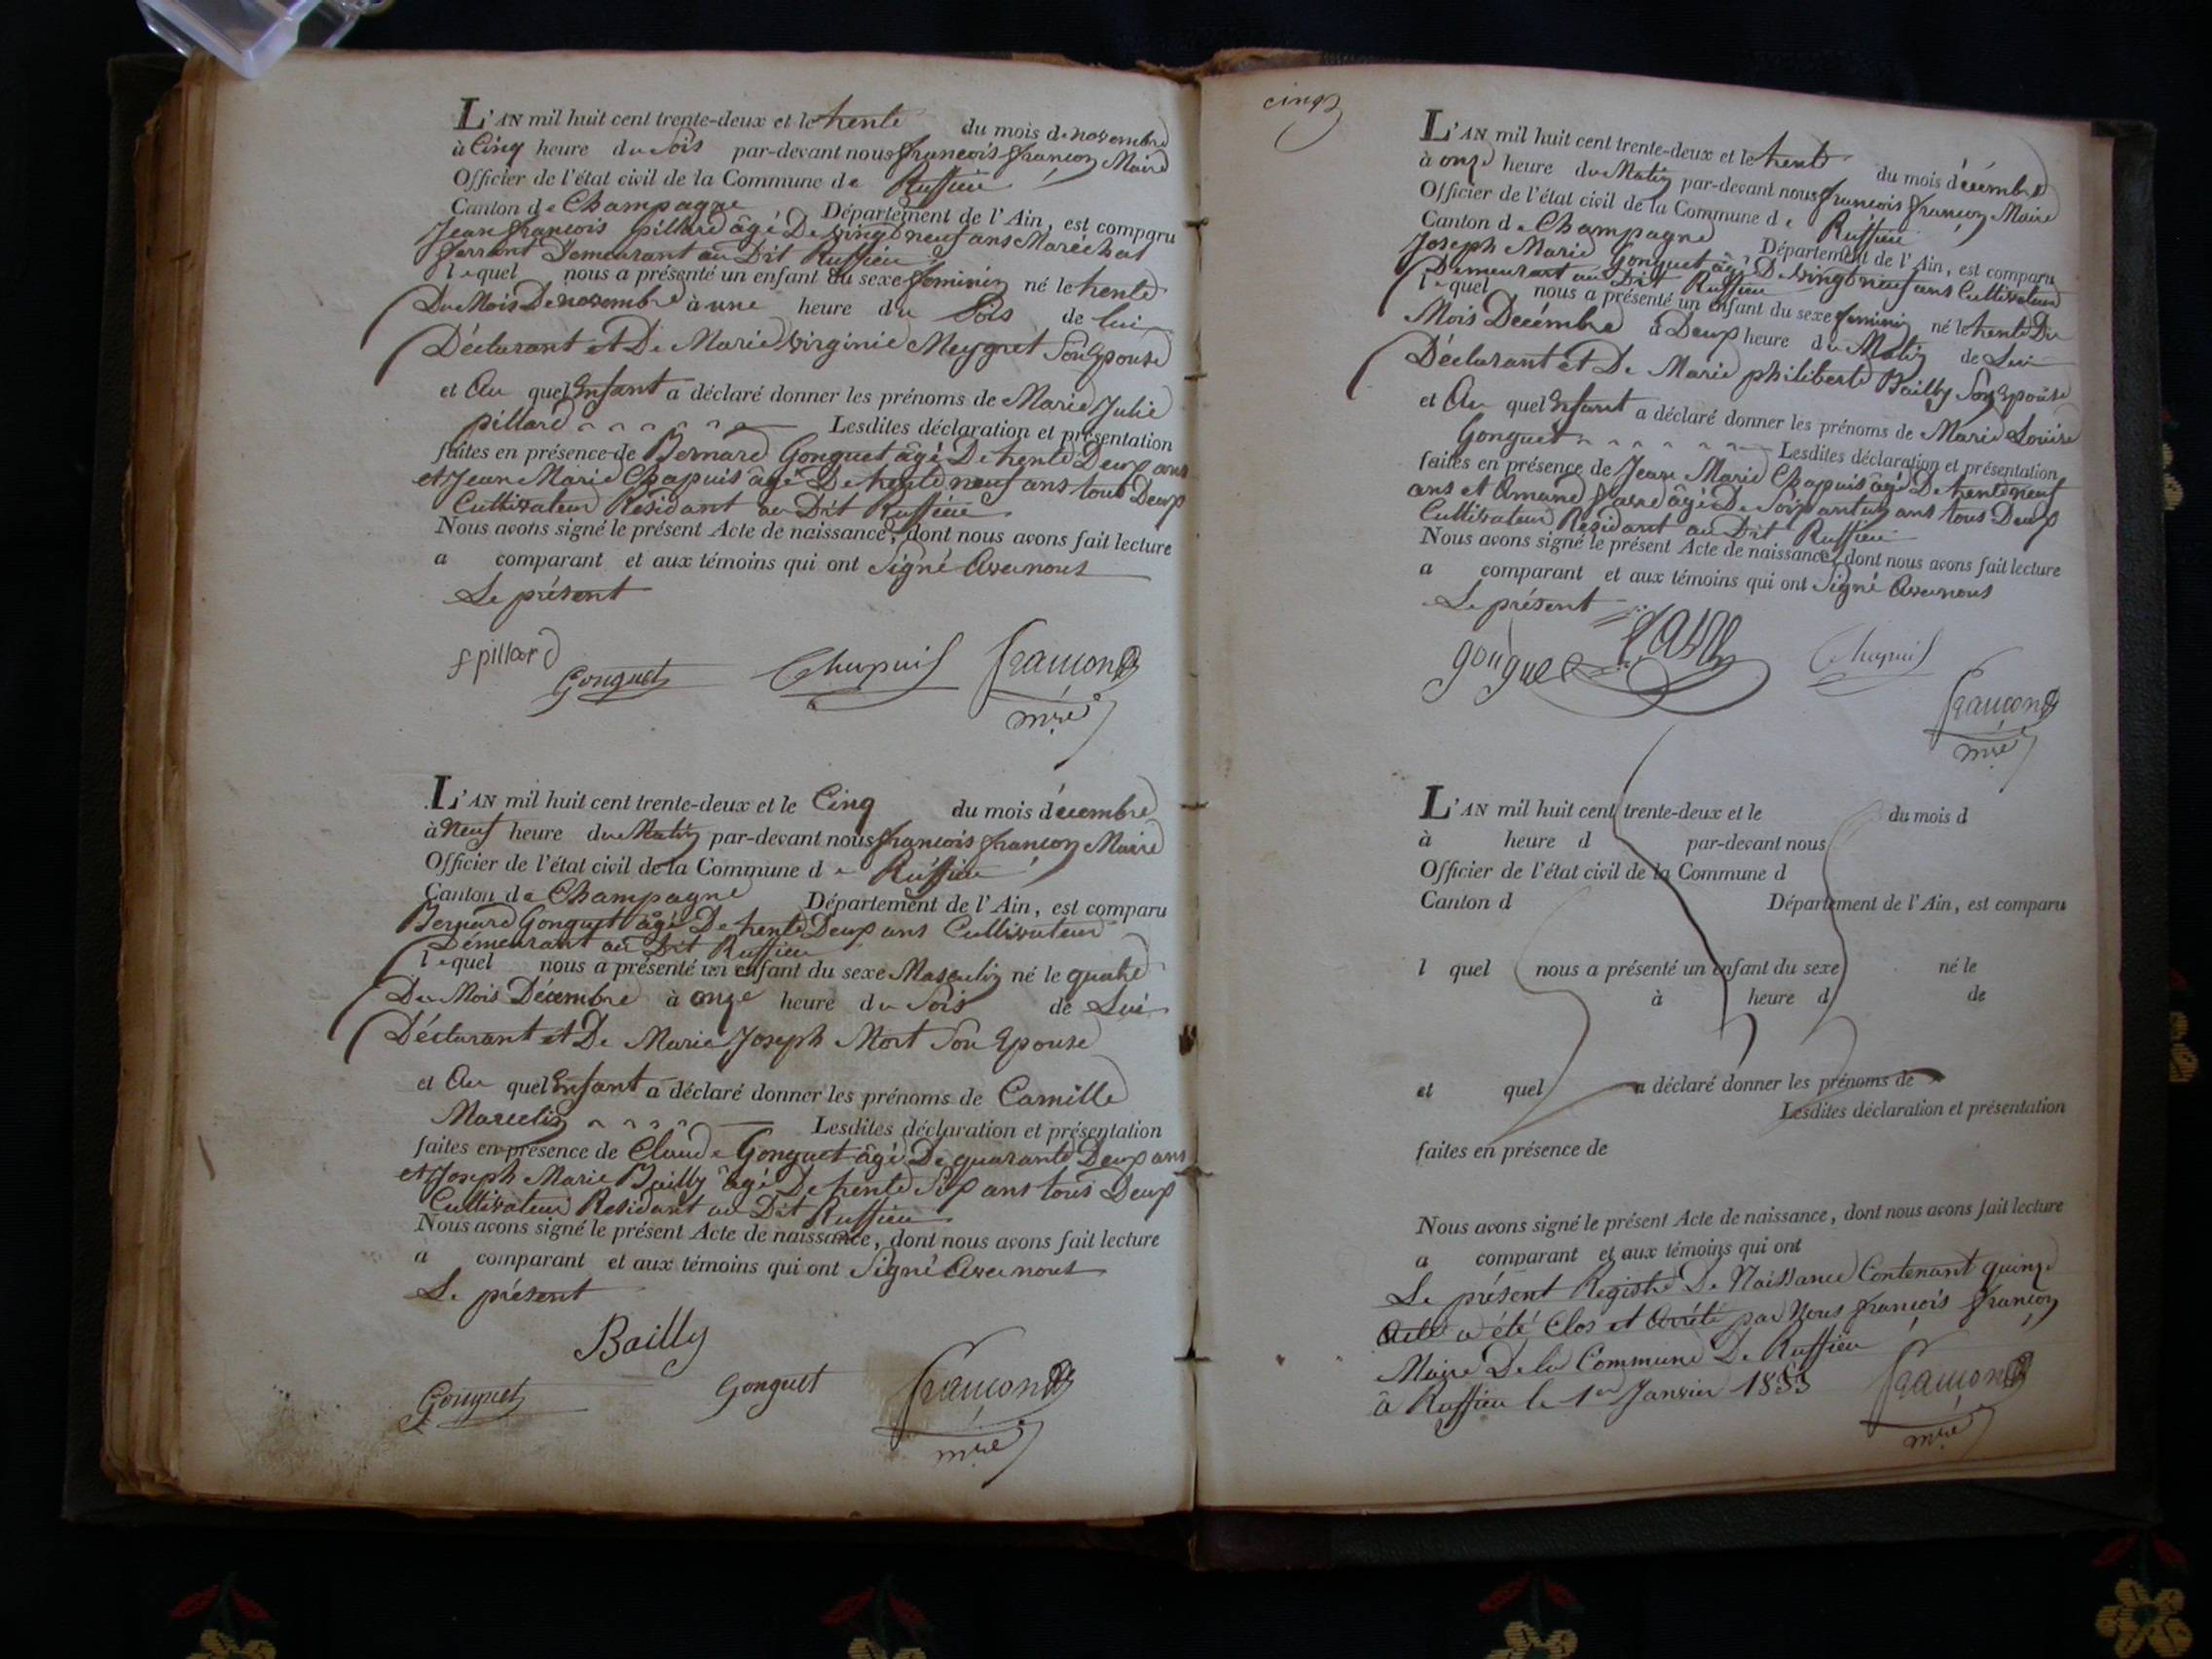 L'AN mil huit cent trente-deux et le trente du mois de novembre
à Cinq heure du Soir par-devant nous françois françon Maire
Officier de l'état civil de la Commune de Ruffieu
Canton de Champagne Département de l'Ain, est comparu
Jean françois pillard âgé De vingt neuf ans Maréchal
ferrant Demeurant au Dit Ruffieu
lequel nous a présenté un enfant du sexe feminin né le trente
Du Mois De novembre à une heure du Soir de lui
Déclarant et De Marie Virginie Meygret Son Epouse
et Au quel Enfant a déclaré donner les prénoms de Marie Julie
pillard Lesdites déclaration et présentation
faites en présence de Bernard Gonguet âgé De trente Deux ans
et Jean Marie Chapuis âgé De trente neuf ans tous Deux
Cultivateur Résidant au Dit Ruffieu
Nous avons signé le présent Acte de naissance, dont nous avons fait lecture
a comparant et aux témoins qui ont Signé Avec nous
Le présent
f pillard Gonguet Chapuis françon
mre
L'AN mil huit cent trente-deux et le Cinq du mois décembre
à Neuf heure du Matin par-devant nous françois françon Maire
Officier de l'état civil de la Commune de Ruffieu
Canton de Champagne Département de l'Ain, est comparu
Bernard Gonguet âgé De trente Deux ans Cultivateur
Démeurant au Dit Ruffieu
lequel nous a présenté un enfant du sexe Masculin né le quatre
Du Mois Décembre à onze heure du Soir de Lui
Déclarant et De Marie Joseph Mort Son Epouse
et Au quel Enfant a déclaré donner les prénoms de Camille
Marcelin Lesdites déclaration et présentation
faites en présence de Claude Gonguet âgé De quarante Deux ans
et Joseph Marie Bailly âgé De trente Six ans tous Deux
Cultivateur Résidant au Dit Ruffieu
Nous avons signé le présent Acte de naissance, dont nous avons fait lecture
a comparant et aux témoins qui ont Signé Avec nous
Le présent
Bailly
Gonguet Gonguet françon
mre
cinq
L'AN mil huit cent trente-deux et le trente du mois décembre
à onze heure du Matin par-devant nous françois françon Maire
Officier de l'état civil de la Commune de Ruffieu
Canton de Champagne Département de l'Ain, est comparu
Joseph Marie Gonguet âgé De vingt neuf ans Cultivateur
Demeurant au Dit Ruffieu
lequel nous a présenté un enfant du sexe feminin né le trente Du
Mois Décembre à Deux heure du Matin de Lui
Déclarant et De Marie philiberte Bailly Son Epouse
et Au quel Enfant a déclaré donner les prénoms de Marie Louise
Gonguet Lesdites déclaration et présentation
faites en présence de Jean Marie Chapuis âgé De trente neuf
ans et Amand âgé De Soixante ans tous Deux
Cultivateur Résidant au Dit Ruffieu
Nous avons signé le présent Acte de naissance, dont nous avons fait lecture
a comparant et aux témoins qui ont Signé Avec nous
Le présent
gouguet Chapuis
françon
mre
L'AN mil huit cent trente-deux et le du mois d
à heure d par-devant nous
Officier de l'état civil de la Commune d
Canton d Département de l'Ain, est comparu
l quel nous a présenté un enfant du sexe né le
à heure d de
et quel a déclaré donner les prénoms de
Lesdites déclaration et présentation
faites en présence de
Nous avons signé le présent Acte de naissance, dont nous avons fait lecture
a comparant et aux témoins qui ont
Le présent Registre De Naissance Contenant quinze
Acte a été Clos et Arrêté par Nous françois françon
Maire De la Commune De Ruffieu
à Ruffieu le 1er Janvier 1833 françon
mre